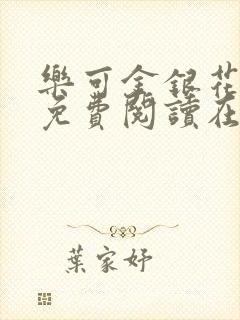 樂可金銀花
免費閱讀在
葉家妤